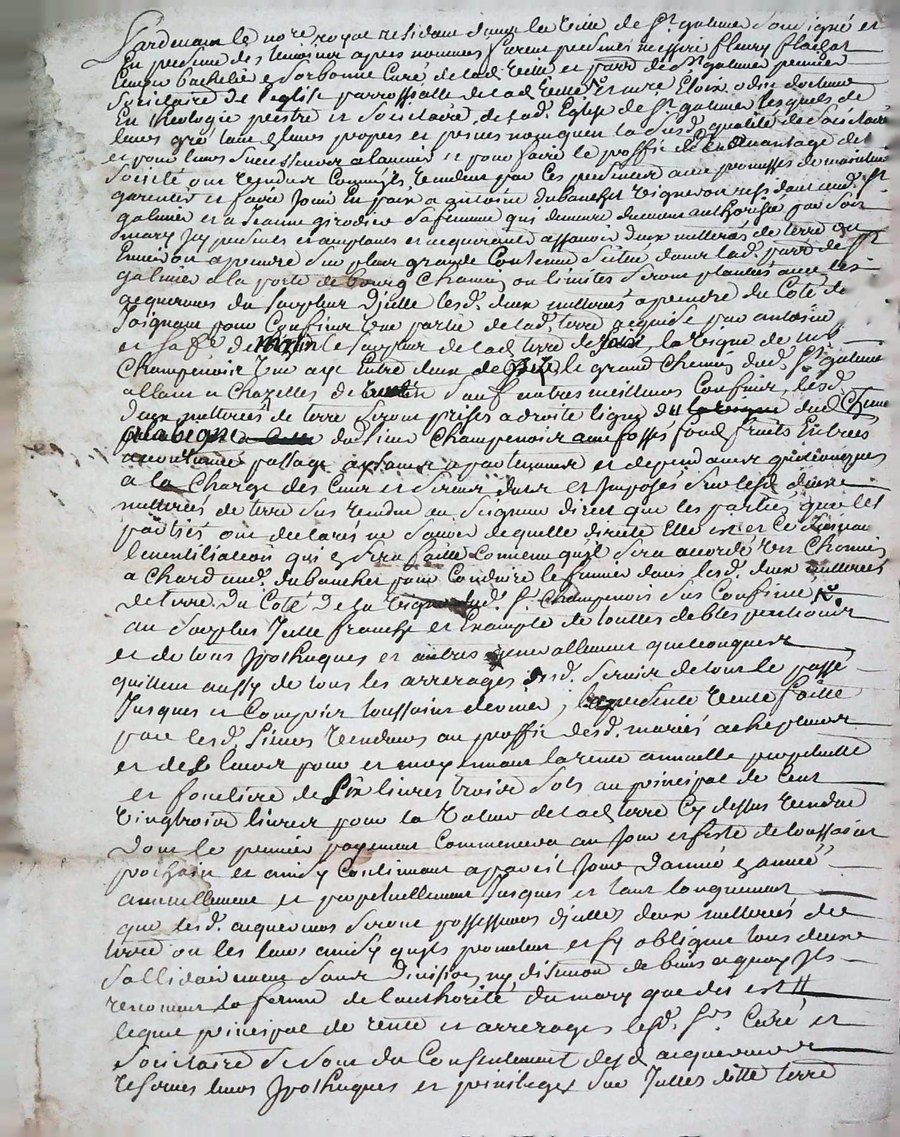 Pardevant le nore royal residant dans la ville de St galmier soussigné et
En presence des temoins apres nommes furent presents messire fleury flachat
bachelier Sorbonne Curé de lad. ville et parr de St galmier premier
Societaire de l'eglise parrossialle de lad ville Et mre Eloix odin docteur
En theologie prestre et Societaire de lad. Eglise de St galmier lesquels de
leurs gré tant leurs propres et privés noms quen la susd. qualité de Societaires
et pour leurs Successeurs a lavenir et pour faire le proffit et avantage de la
Societé ont vendus Comme ils vendent par ces presentes avec promesses de maintenir
garentir et faire Jouir En paix a antoine dubanchet vigneron residant aud. St
galmier et a Jeanne girodier sa femme qui demeure duement authorisée par son
mary Icy presents et acceptants et acquerants assavoir deux metterées de terre ou
Environ a prendre d'un plus grand Contenu Situé dans lad. parr de St
galmier a la porte de bourg Chemin ou limites seront plantées avec les
acquereurs du Surplus d'Jcelle lesd. deux metterées a prendre du Coté de
Joignant pour Confins Une partie de lad. terre acquise par antoine
et sa fe de le Surplus de lad terre de la vigne de
Champenois Une aye Entre deux de le grand Chemin dud. St galmier
allant a Chazelles de Sauf autres meilleurs Confins lesd.
deux metterées de terre Seront prises a droite ligne du dud. Chemin
a la vigne du Sieur Champenois avec fossés fond fruits Entrées
accoutumés passage aysance apartenances et dependances quelconques
a la Charge des Cens et Servis dues et Imposés Sur lesd deux
metterées de terre Sus vendue au Seigneur direct que les parties que les
parties ont declarés ne Sçavoir de quelle directe Elle est et Ce Jusqua
qui Sera faite Convenu qu'il Sera accordé Un Chemin
a Chard aud. dubanchet pour Conduire le fumier dans lesd. deux metterées
de terre du Coté de la vigne dud. Sr Champenois Sus Confiné
au Surplus Jcelle franche et Exempte de touttes debtes pentions
et de tous Jpotheques et autres generallement quelconques
quittent aussy de tous les arrerages desd. Servis de tout le passé
Jusques et Compris toussaint dernier, la presente vente faitte
par lesd. Sieurs vendeurs au proffit desd. mariés acheptants
et des leurs pour et moyennant la rente annuelle perpetuelle
et fonciere de Six livres trois Sols au principal de Cent
vingtrois livres pour la valeur de lad terre Cy dessus vendue
dont le premier payement Commencera au Jour et feste de toussaint
prochain et ainsy Continuant a pareil Jour d'année En année
annuellement et perpetuellement Jusques et tant longuement
que lesd. acquereurs Seront possesseurs d'Jcelles deux metterées de
terre ou les leurs ainsy qu'ils promettent et S'y obligent tous deux
Sollidairement Sans division ny discution de biens a quoy Jls
renoncent la femme de l'authorité du mary que dessus
lequel principal de rente et arrerages lesd. Srs Curé et
Societaire Se Sont du Consentement desd acquereurs
reservés leurs Jpotheques et privileges Sur Jcelle ditte terre